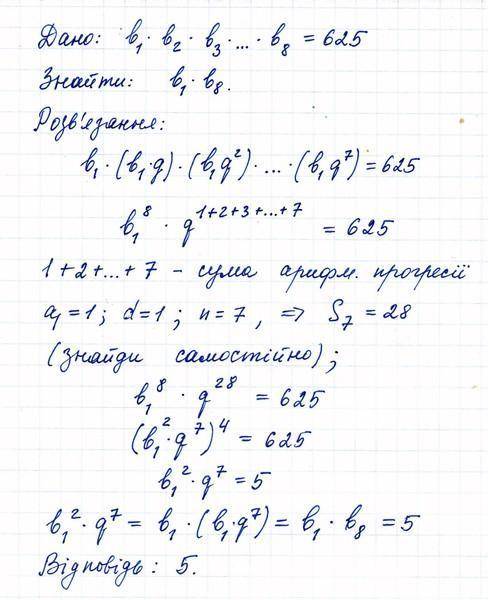 Дано: b₁ · b₂ · b₃ · ... · b₈ = 625
Знайти: b₁ · b₈.
Розв'язання:
b₁ · (b₁·q) · (b₁q²) · ... · (b₁q⁷) = 625
b₁⁸ · q¹⁺²⁺³⁺···⁺⁷ = 625
1+2+...+7 - сума арифм. прогресії
a₁=1; d=1; n=7, => S₇ = 28
(знайди самостійно);
b₁⁸ · q²⁸ = 625
(b₁² · q⁷)⁴ = 625
b₁² · q⁷ = 5
b₁² · q⁷ = b₁ · (b₁·q⁷) = b₁ · b₈ = 5
Відповідь: 5.